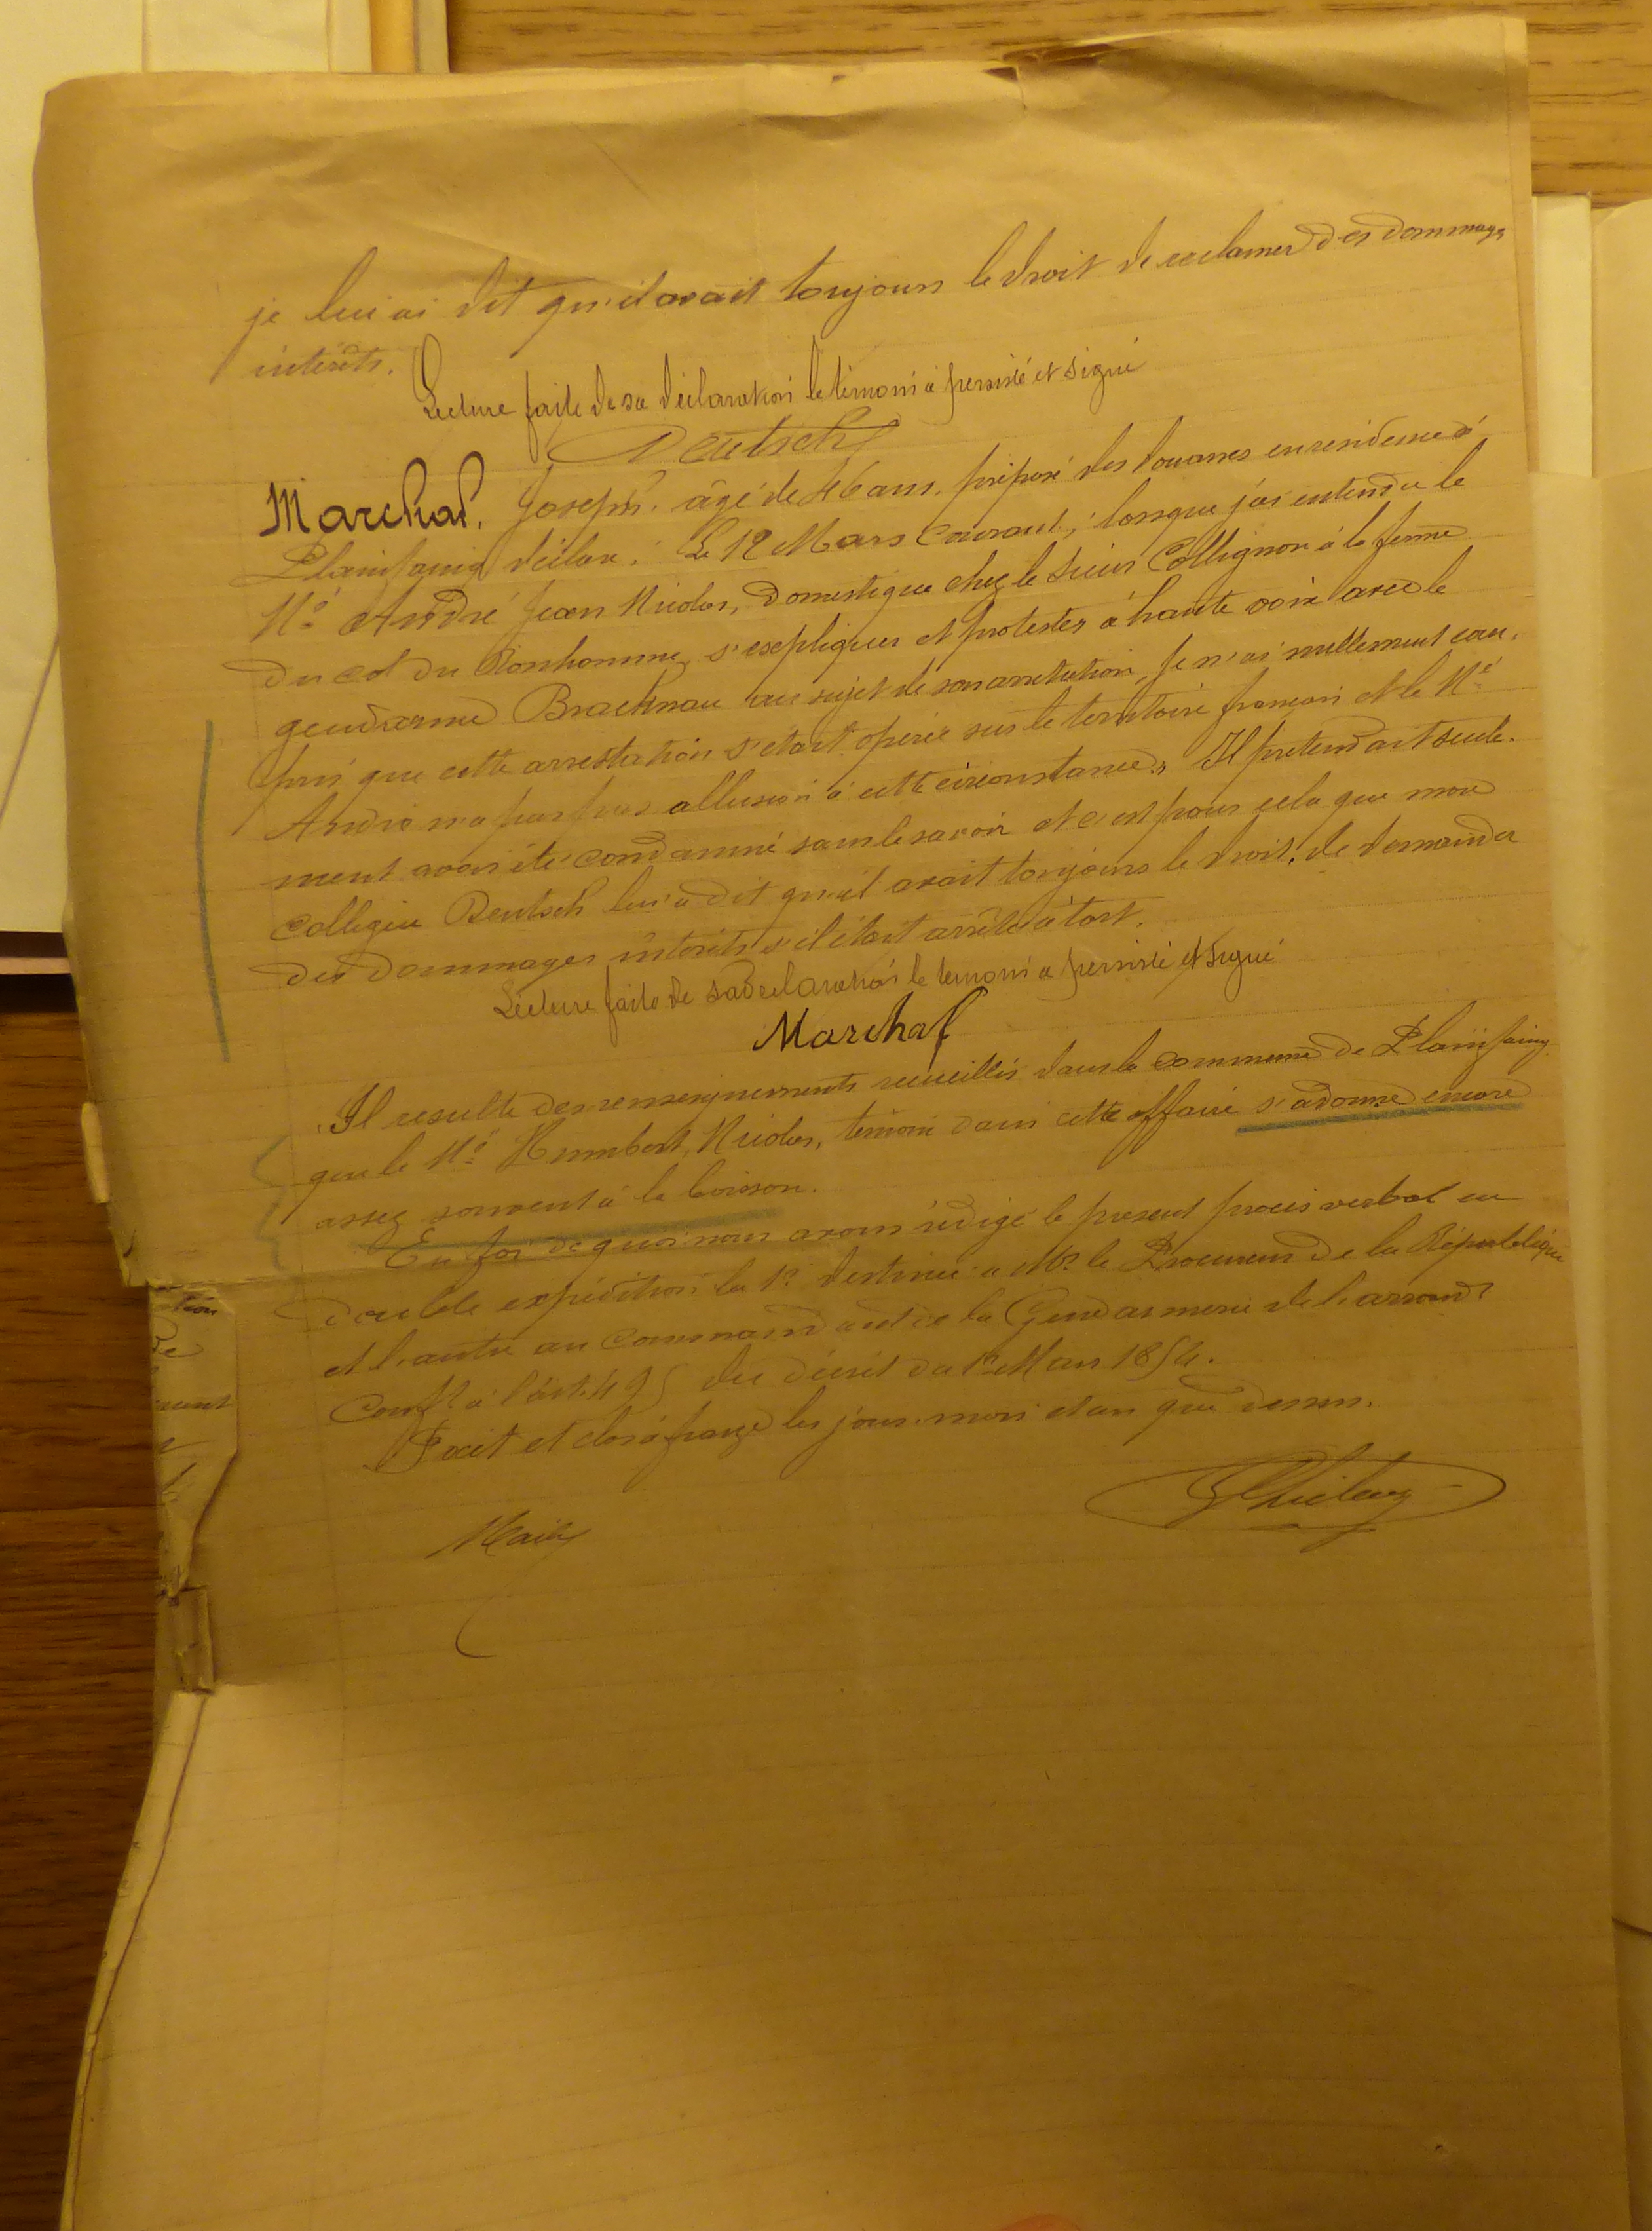 je lui ai dit qu'il avait toujours le droit de reclamer des dommages
intérêts.
Lecture faite de sa déclaration le témoin a persisté et signé
Deutsch
Marchal, Joseph, âgé de 46 ans, préposé des douanes en residence à
Plainfaing déclare : Le 12 Mars courant, lorsque j'ai entendu le
Né André Jean Nicolas, domestique chez le sieur Collignon à la ferme
du col du Bonhomme, s'expliquer et protester à haute voix avec le
gendarme Bracknau au sujet de son arrestation, je n'ai nullement com-
pris que cette arrestation s'était opérée sur le territoire français et le Né
André n'a pas fait allusion à cette circonstance. Il prétendait seule-
ment avoir été condamné sans le savoir et c'est pour cela que mon
collègue Deutsch lui a dit qu'il avait toujours le droit de demander
des dommages intérêts s'il était arrêté à tort.
Lecture faite de sa déclaration le témoin a persisté et signé
Marchal
Il resulte des renseignements recueillis dans la commune de Plainfaing
que le Né Humbert, Nicolas, témoin dans cette affaire s'adonne encore
assez souvent à la boisson.
En foi de quoi nous avons rédigé le présent procès verbal en
double expédition la 1e destinée à Mr le Procureur de la République
et l'autre au commandant de la Gendarmerie de l'arrondt
Conft à l'art. 495 du décret du 1er Mars 1854.
Fait et clos à fraize les jour, mois et an que dessus.
tion
De
ment